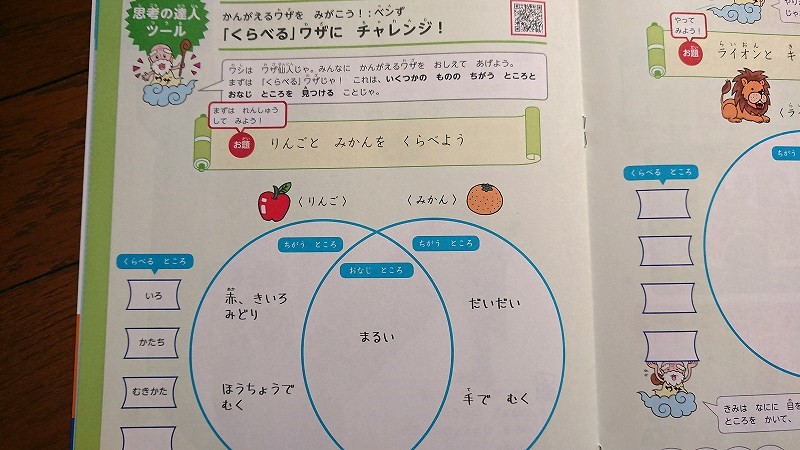 思考の達人
ツール
かんがえるワザを みがこう！：ベンず
「くらべる」ワザに チャレンジ！
ワシは ワザ仙人じゃ。みんなに かんがえるワザを おしえて あげよう。
まずは「くらべる」ワザじゃ！ これは、いくつかの ものの ちがう ところと
おなじ ところを 見つける ことじゃ。
まずは れんしゅう
して みよう！
お題
りんごと みかんを くらべよう
〈りんご〉
〈みかん〉
くらべる ところ
ちがう ところ
おなじ ところ
ちがう ところ
いろ
赤、きいろ
みどり
まるい
だいだい
かたち
むきかた
ほうちょうで
むく
手で むく
やって
みよう！
お題
ライオンと キ
〈ラ
くらべる ところ
ちがう
きみは なにに 目を
ところを かいて、